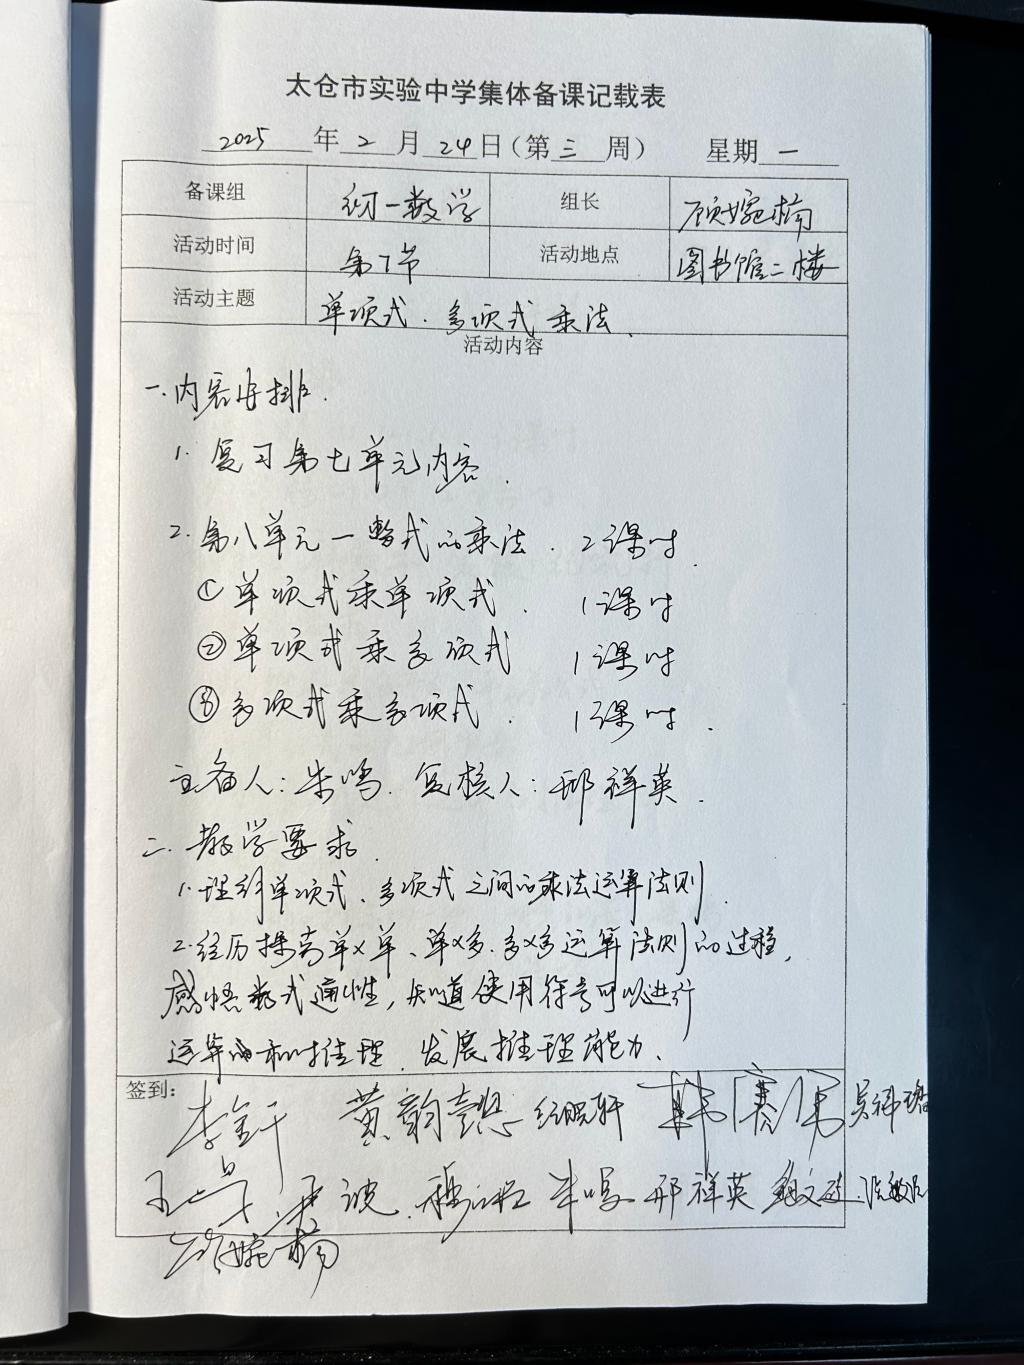 太仓市实验中学集体备课记载表
2025 年 2 月 24 日（第 三 周） 星期 一
备课组 初一数学 组长 顾婉楠
活动时间 第7节 活动地点 图书馆二楼
活动主题 单项式、多项式乘法
活动内容
一、内容安排.
1. 复习第七单元内容.
2. 第八单元—整式的乘法. 2课时.
① 单项式乘单项式. 1课时
② 单项式乘多项式 1课时
③ 多项式乘多项式. 1课时.
主备人: 朱鸣. 复核人: 邢祥英.
二. 教学要求.
1. 理解单项式、多项式之间的乘法运算法则.
2. 经历探究单×单、单×多、多×多运算法则的过程,
感悟数式通性, 知道使用符号可以进行
运算和推理. 发展推理能力.
签到:
李轩 黄韵
朱鸣 邢祥英
顾婉楠